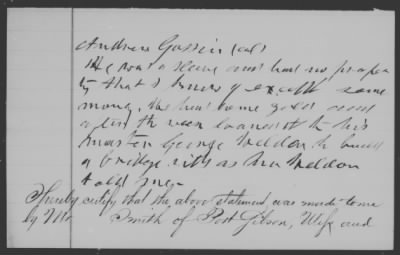 Andrew Gossin (col)
He was a slave and had no proper
ty that I knew of except some
money. He had some gold and
after the was loaned it to his
master George Weldon to build
a bridge with as Mr Weldon
told me.
I hereby certify that the above statement was made to me
by Mr. Smith of Port Gibson, Miss, and